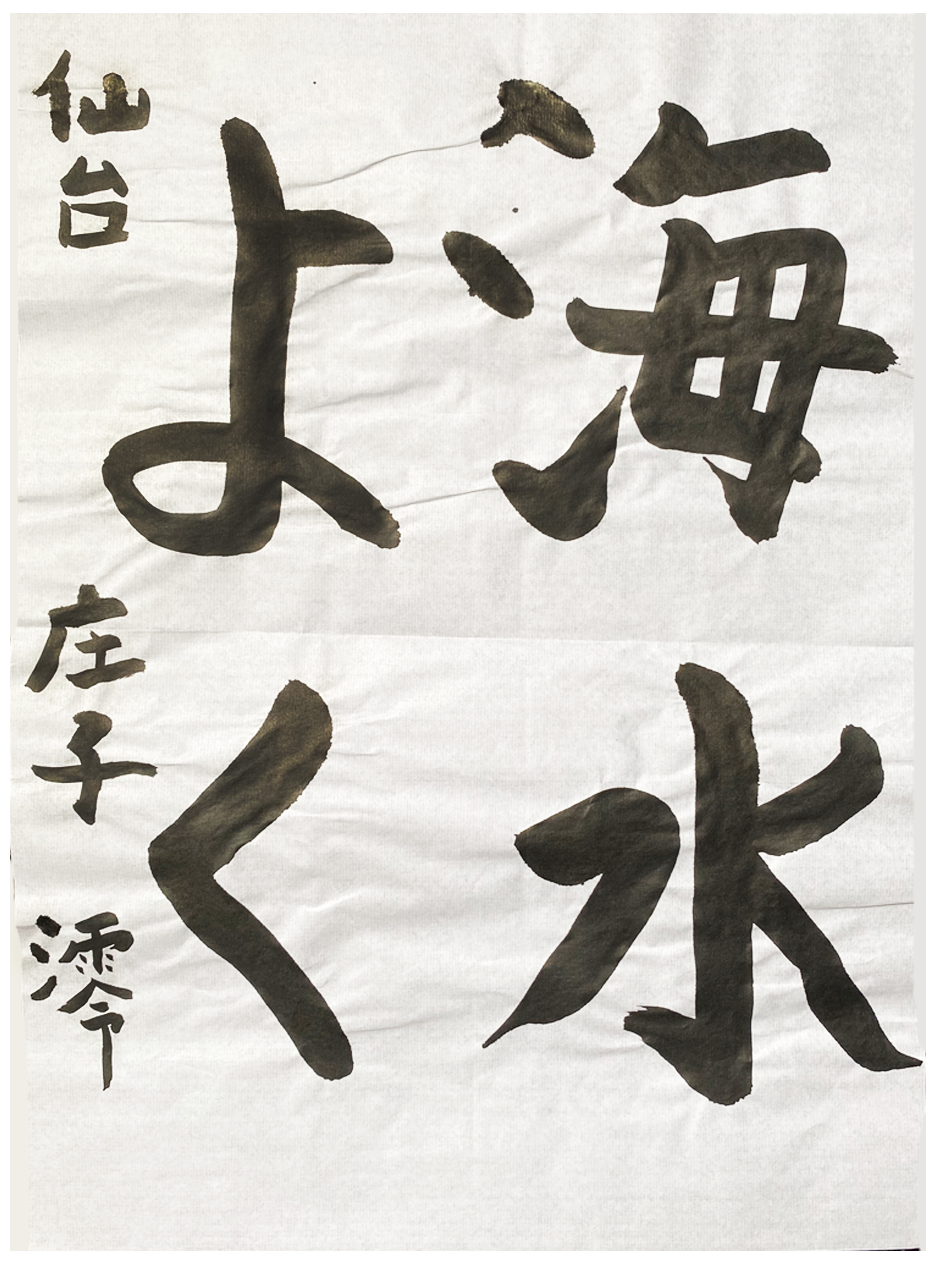 海水
よく
仙台 庄子 澪